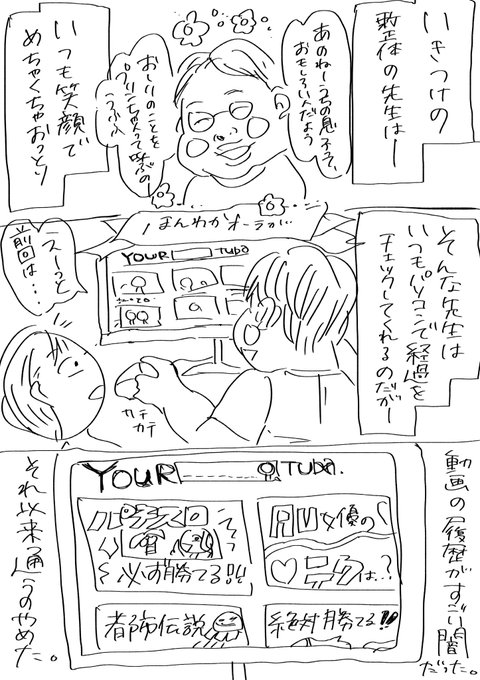 いきつけの
整体の先生はー
あのねーうちの息子ってば、
おもしろいんだよう
おしりのことを
プリンちゃんて呼ぶのー
うふふ
いつも笑顔で
めちゃくちゃおっとり
ほんわかオーラが…
そんな先生は
いつもパソコンで経過を
チェックしてくれるのだがー
YOUR TUBA
えーっと
前回は…
カチ
カチ
動画の履歴がすごい闇
だった。
YOUR TUBA.
パチスロ
必ず勝てる!!!
女優の
は..?
都市伝説
絶対勝てる!!
それ以来通うのやめた。